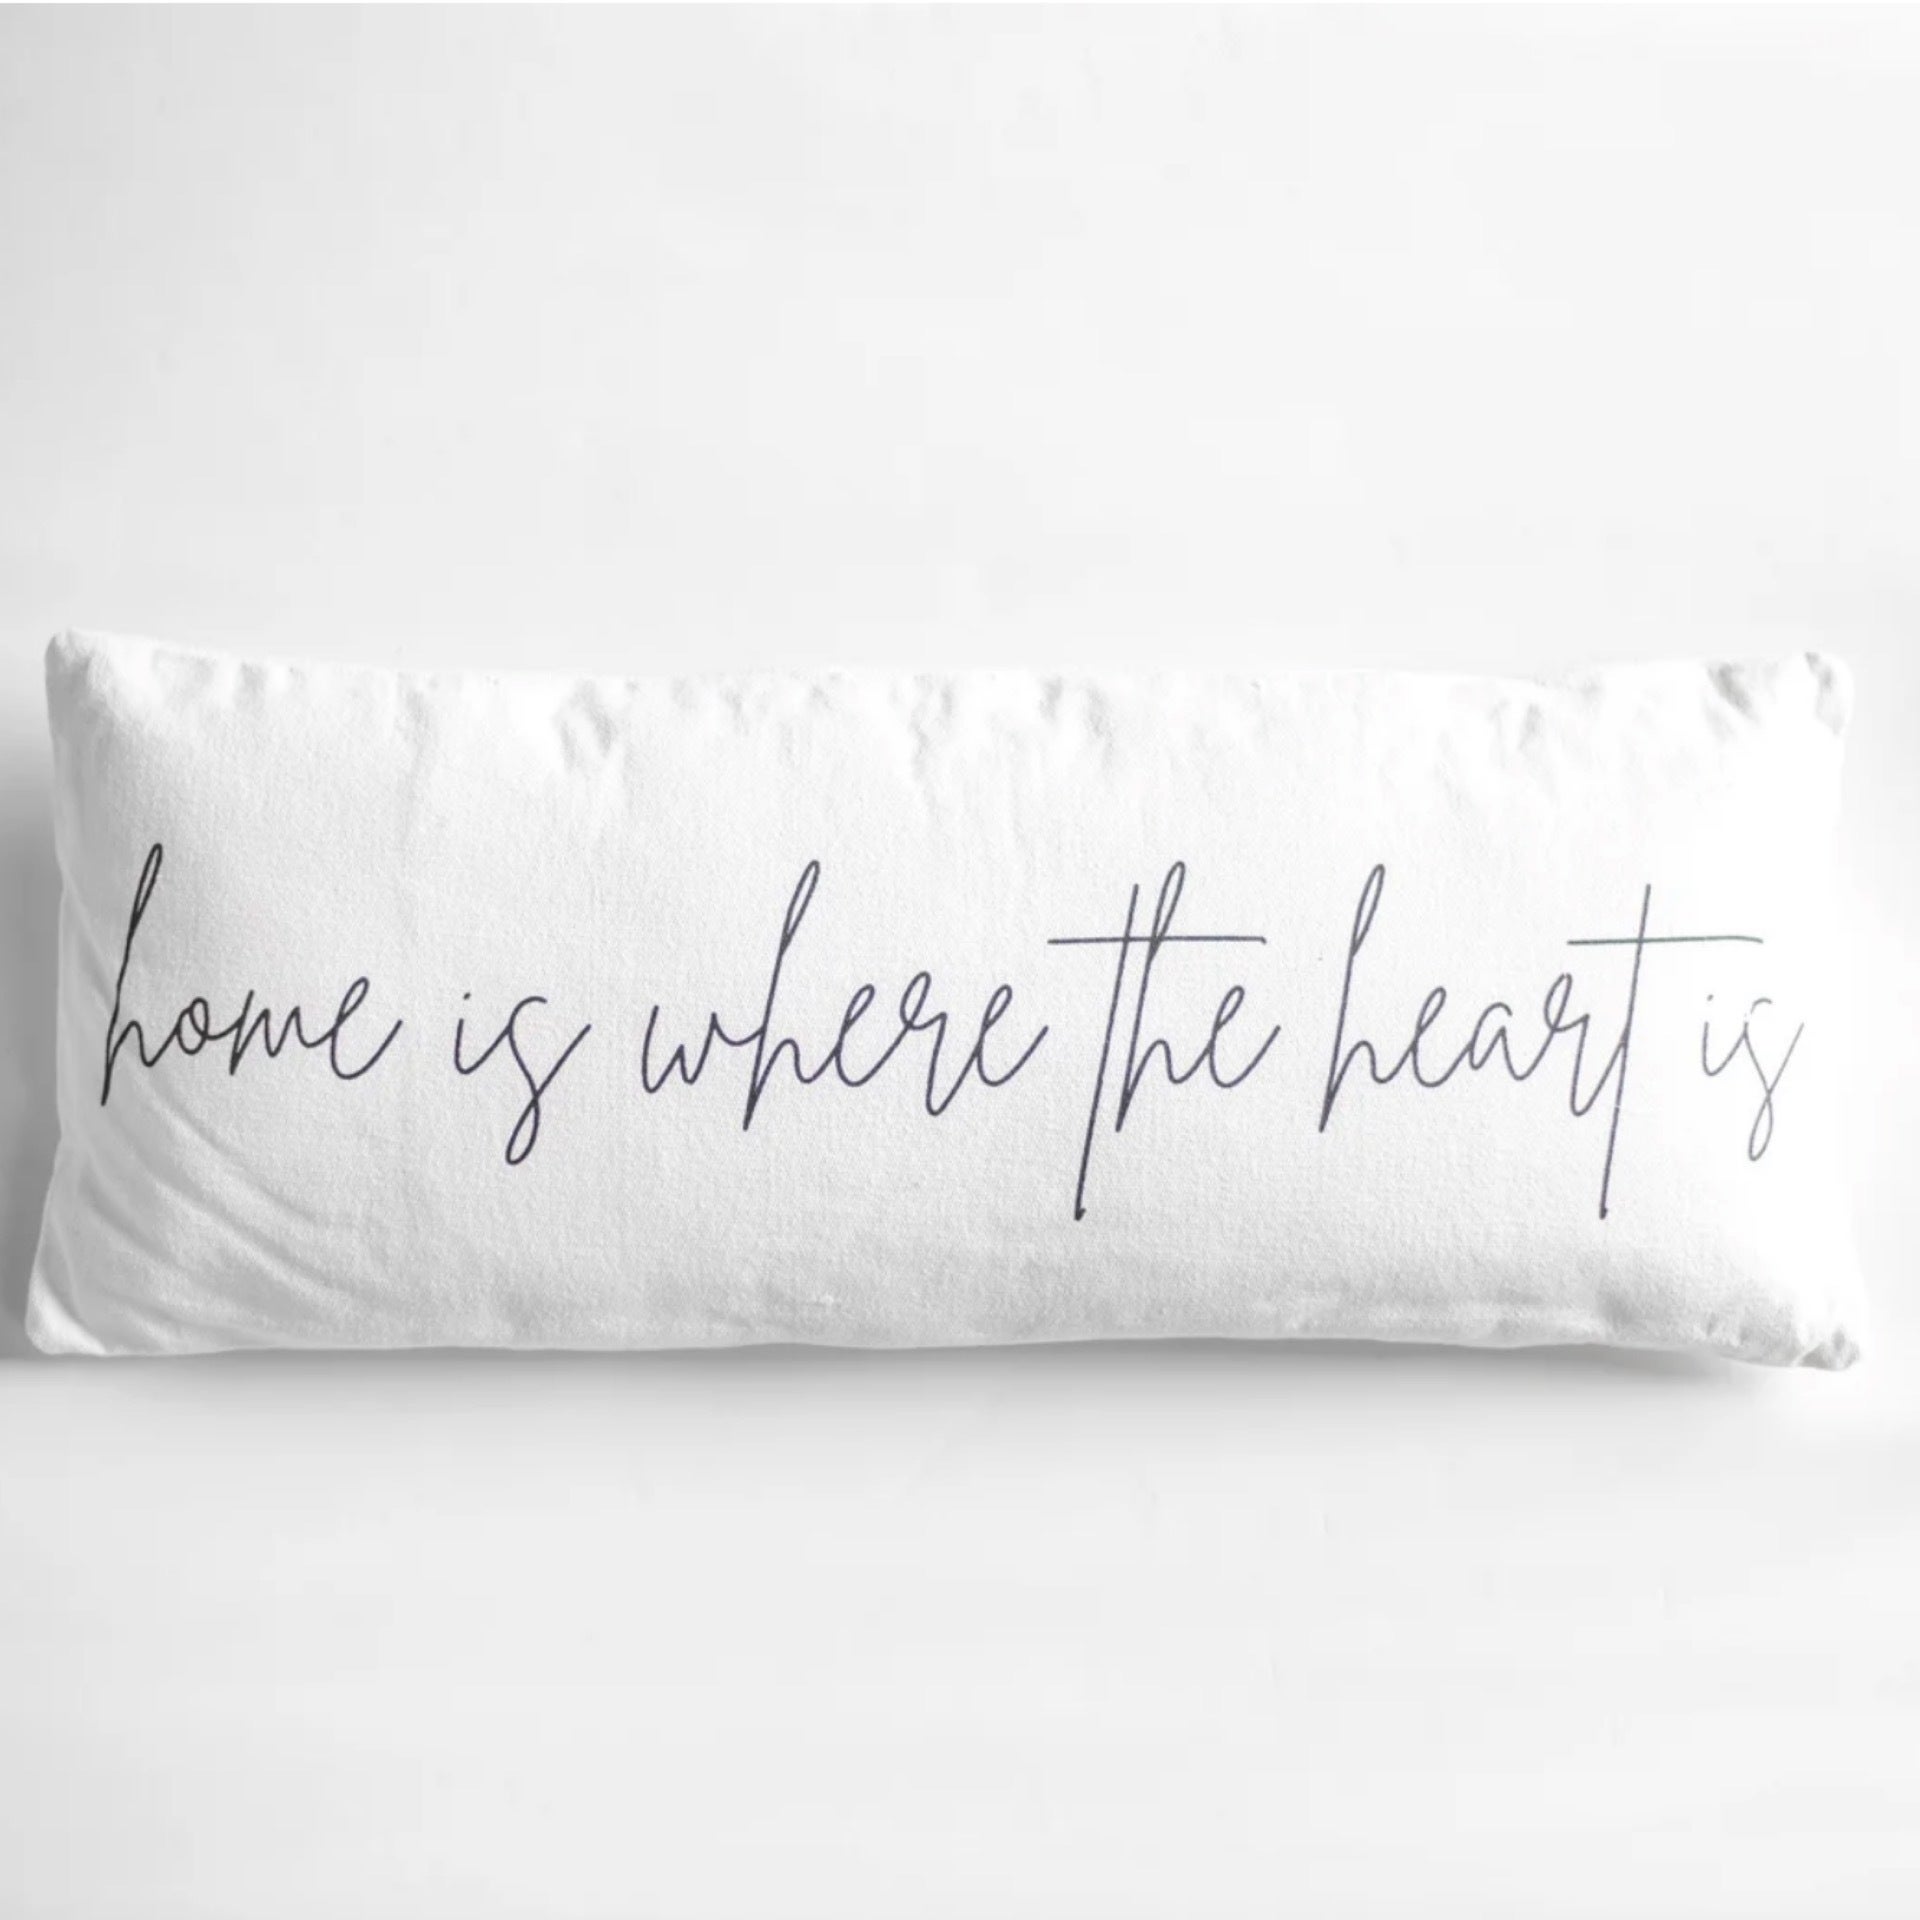 home is where the heart is